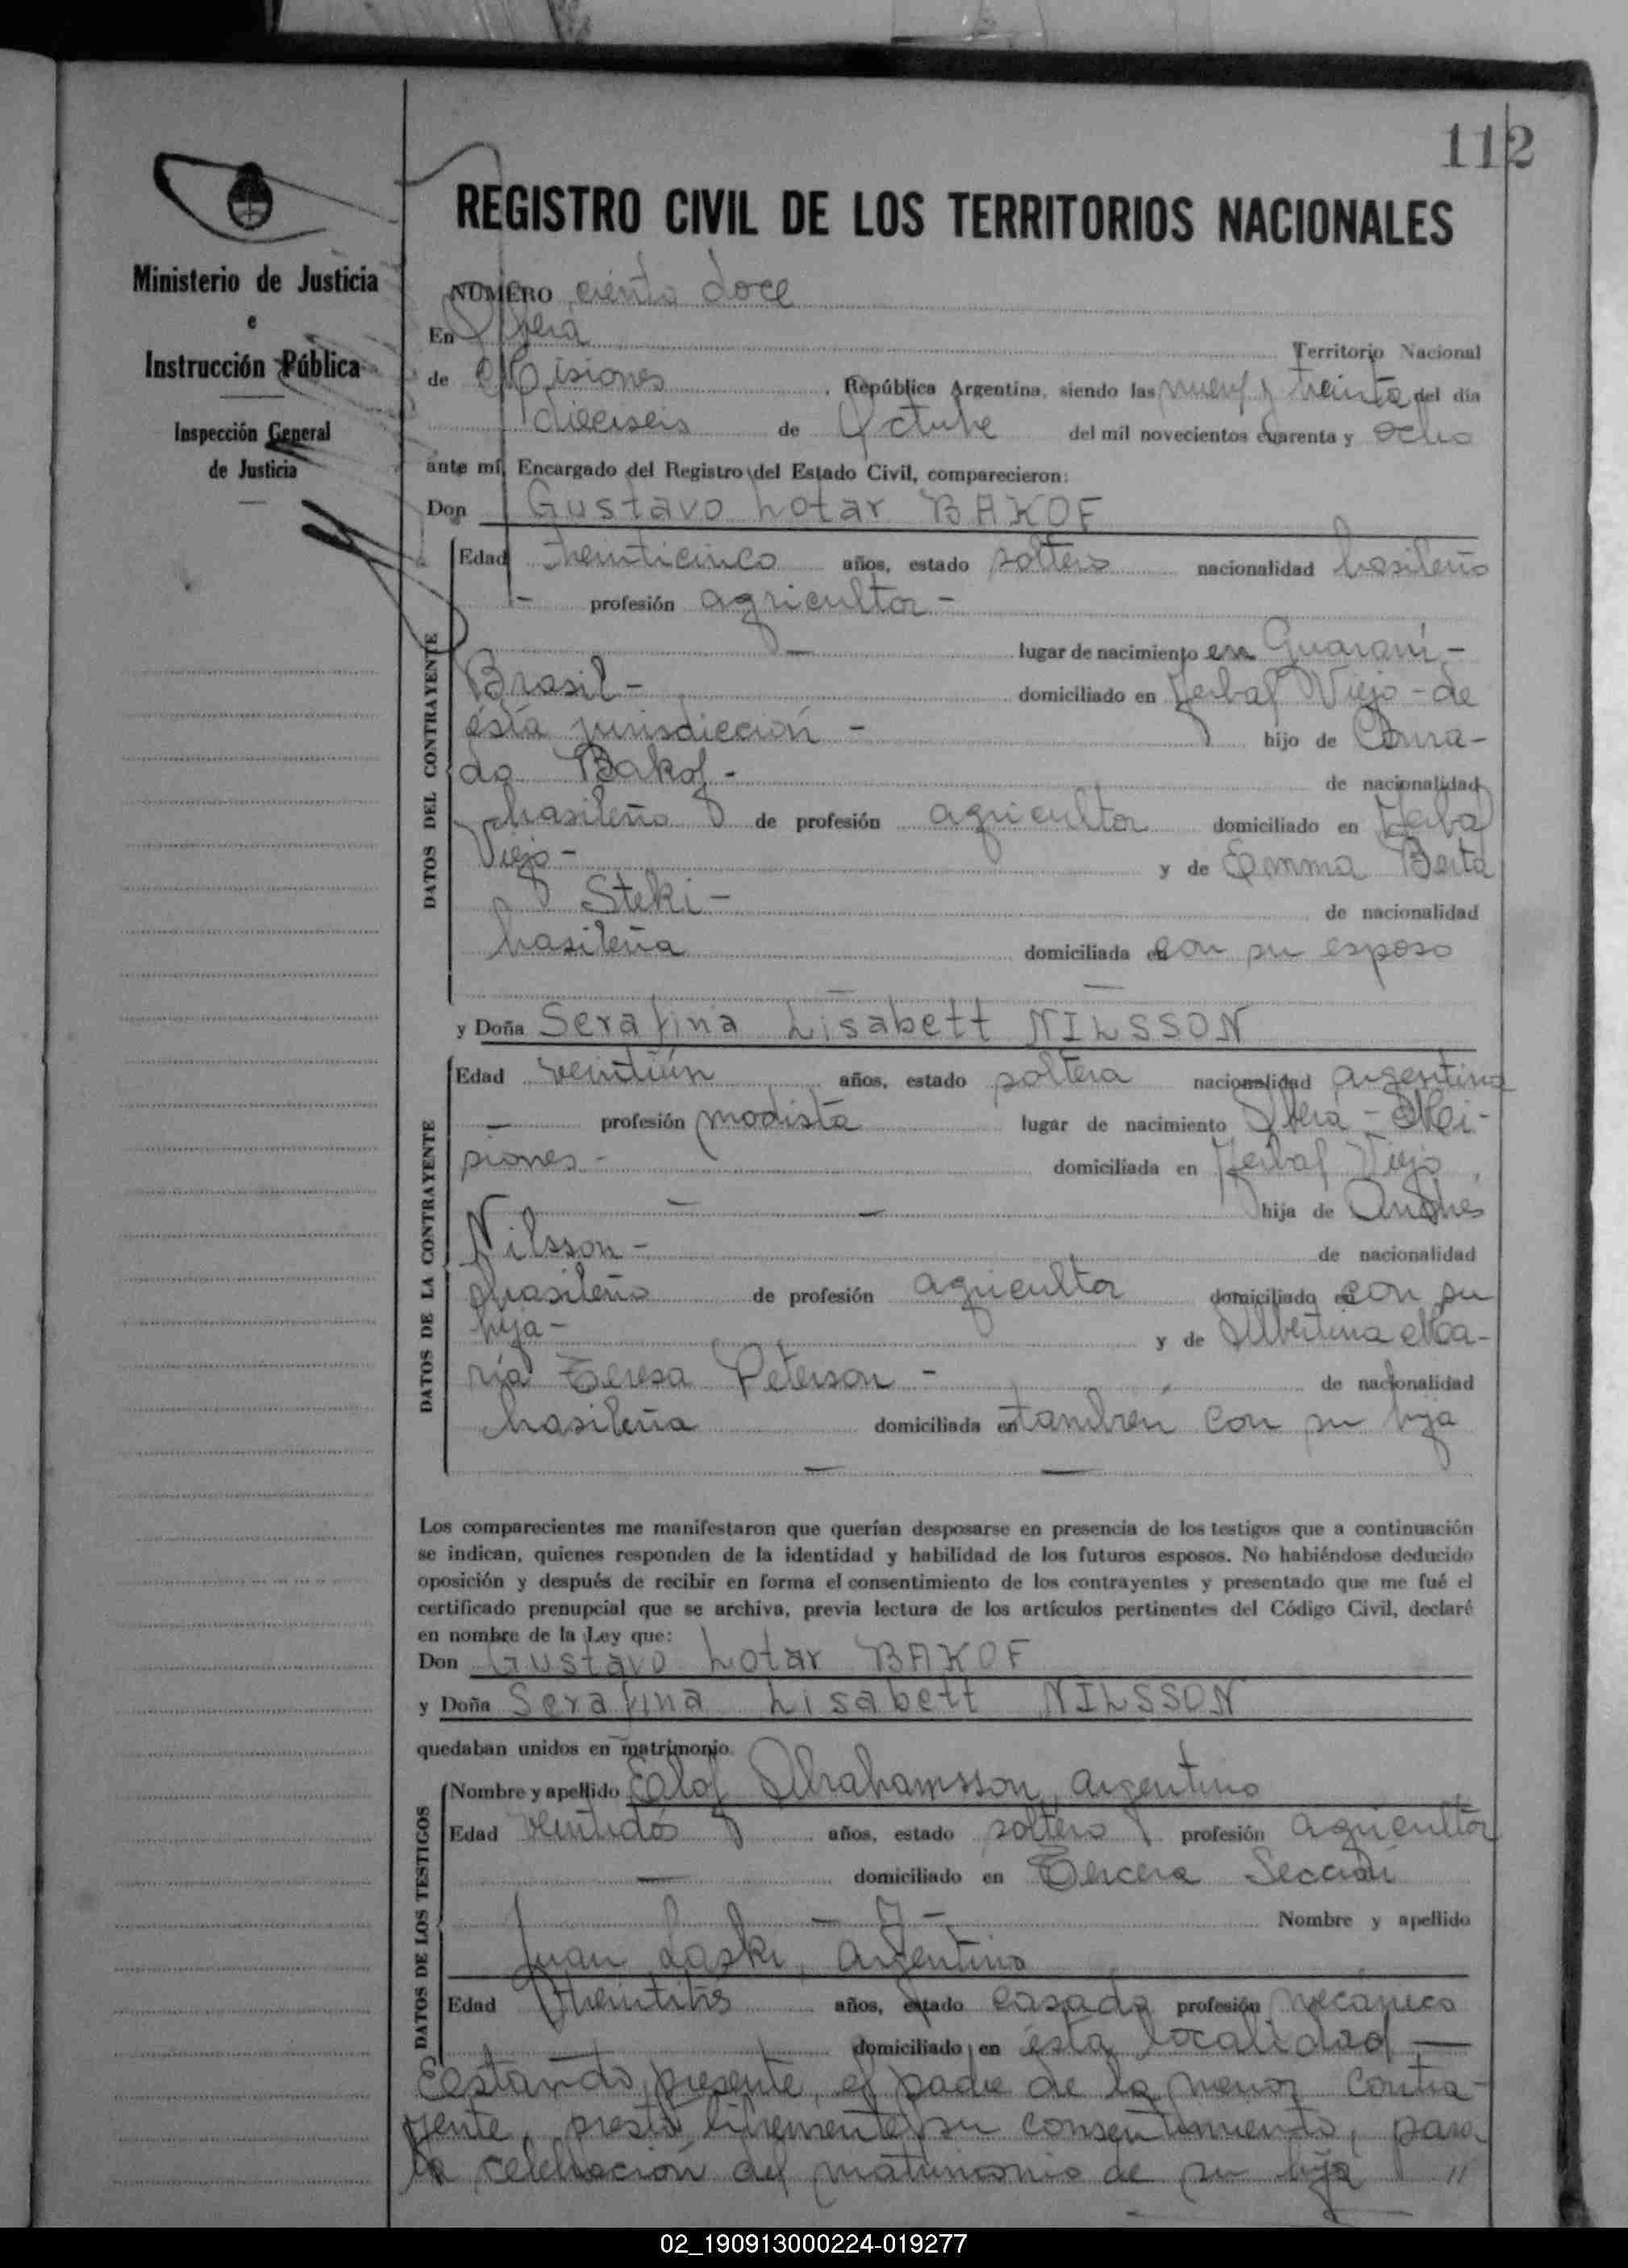 112
Ministerio de Justicia
e
Instrucción Pública
Inspección General
de Justicia
REGISTRO CIVIL DE LOS TERRITORIOS NACIONALES
NÚMERO ciento doce
En Oberá
Territorio Nacional
de Misiones , República Argentina, siendo las nueve y treinta del día
dieciseis de Octubre del mil novecientos cuarenta y ocho
ante mí, Encargado del Registro del Estado Civil, comparecieron:
Don Gustavo Lotar BAKOF
DATOS DEL CONTRAYENTE
Edad treinticinco años, estado soltero nacionalidad brasileño
- profesión agricultor -
- lugar de nacimiento en Guaraní -
Brasil - domiciliado en Yerbal Viejo - de
ésta jurisdicción - hijo de Conra-
do Bakof - de nacionalidad
brasileño de profesión agricultor domiciliado en Yerbal
Viejo - y de Emma Berta
Steki - de nacionalidad
brasileña domiciliada en con su esposo
y Doña Serafina Lisabett NILSSON
DATOS DE LA CONTRAYENTE
Edad veintiún años, estado soltera nacionalidad argentina
- profesión modista lugar de nacimiento Oberá - Mi-
siones - domiciliada en Yerbal Viejo
- - hija de Andrés
Nilsson - de nacionalidad
brasileño de profesión agricultor domiciliado en con su
hija - y de Albertina Ma-
ría Teresa Peterson - de nacionalidad
brasileña domiciliada en también con su hija
Los comparecientes me manifestaron que querían desposarse en presencia de los testigos que a continuación
se indican, quienes responden de la identidad y habilidad de los futuros esposos. No habiéndose deducido
oposición y después de recibir en forma el consentimiento de los contrayentes y presentado que me fué el
certificado prenupcial que se archiva, previa lectura de los artículos pertinentes del Código Civil, declaré
en nombre de la Ley que:
Don Gustavo Lotar BAKOF
y Doña Serafina Lisabett NILSSON
quedaban unidos en matrimonio.
DATOS DE LOS TESTIGOS
Nombre y apellido Elof Abrahamsson, argentino
Edad veintidós años, estado soltero profesión agricultor
domiciliado en Tercera Sección
Nombre y apellido
Juan Laski, argentino
Edad treintitrés años, estado casado profesión mecánico
domiciliado en ésta localidad -
Estando presente, el padre de la menor contra-
yente, prestó libremente su consentimiento, para
la celebración del matrimonio de su hija "
02_190913000224-019277